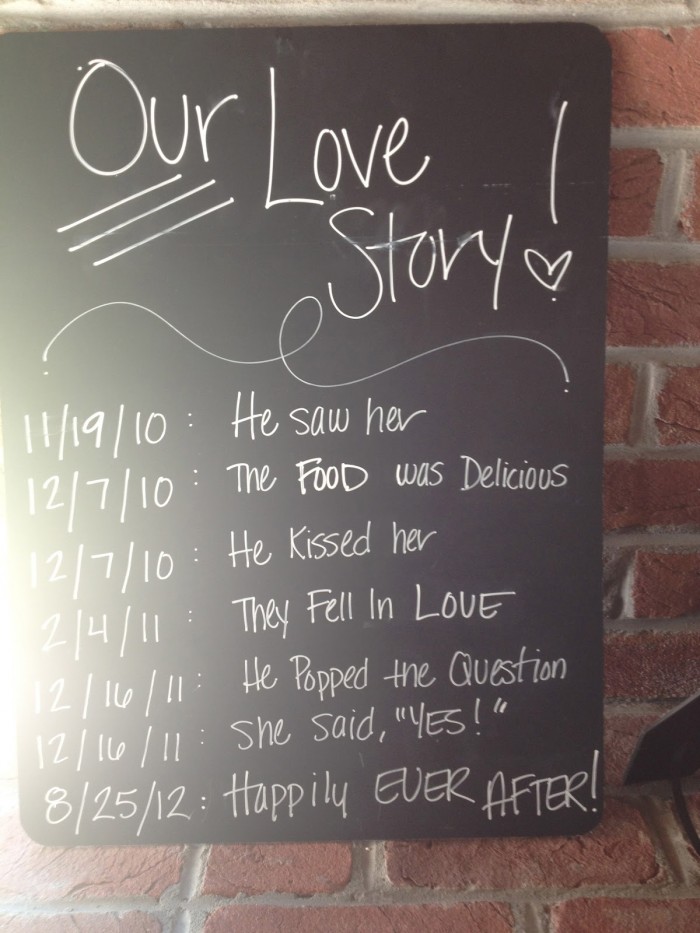 Our Love
Story!
11/19/10 : He saw her
12/7/10 : The FOOD was Delicious
12/7/10 : He Kissed her
2/4/11 : They Fell In LOVE
12/16/11 : He Popped the Question
12/16/11 : She said, "YES!"
8/25/12 : Happily EVER AFTER!